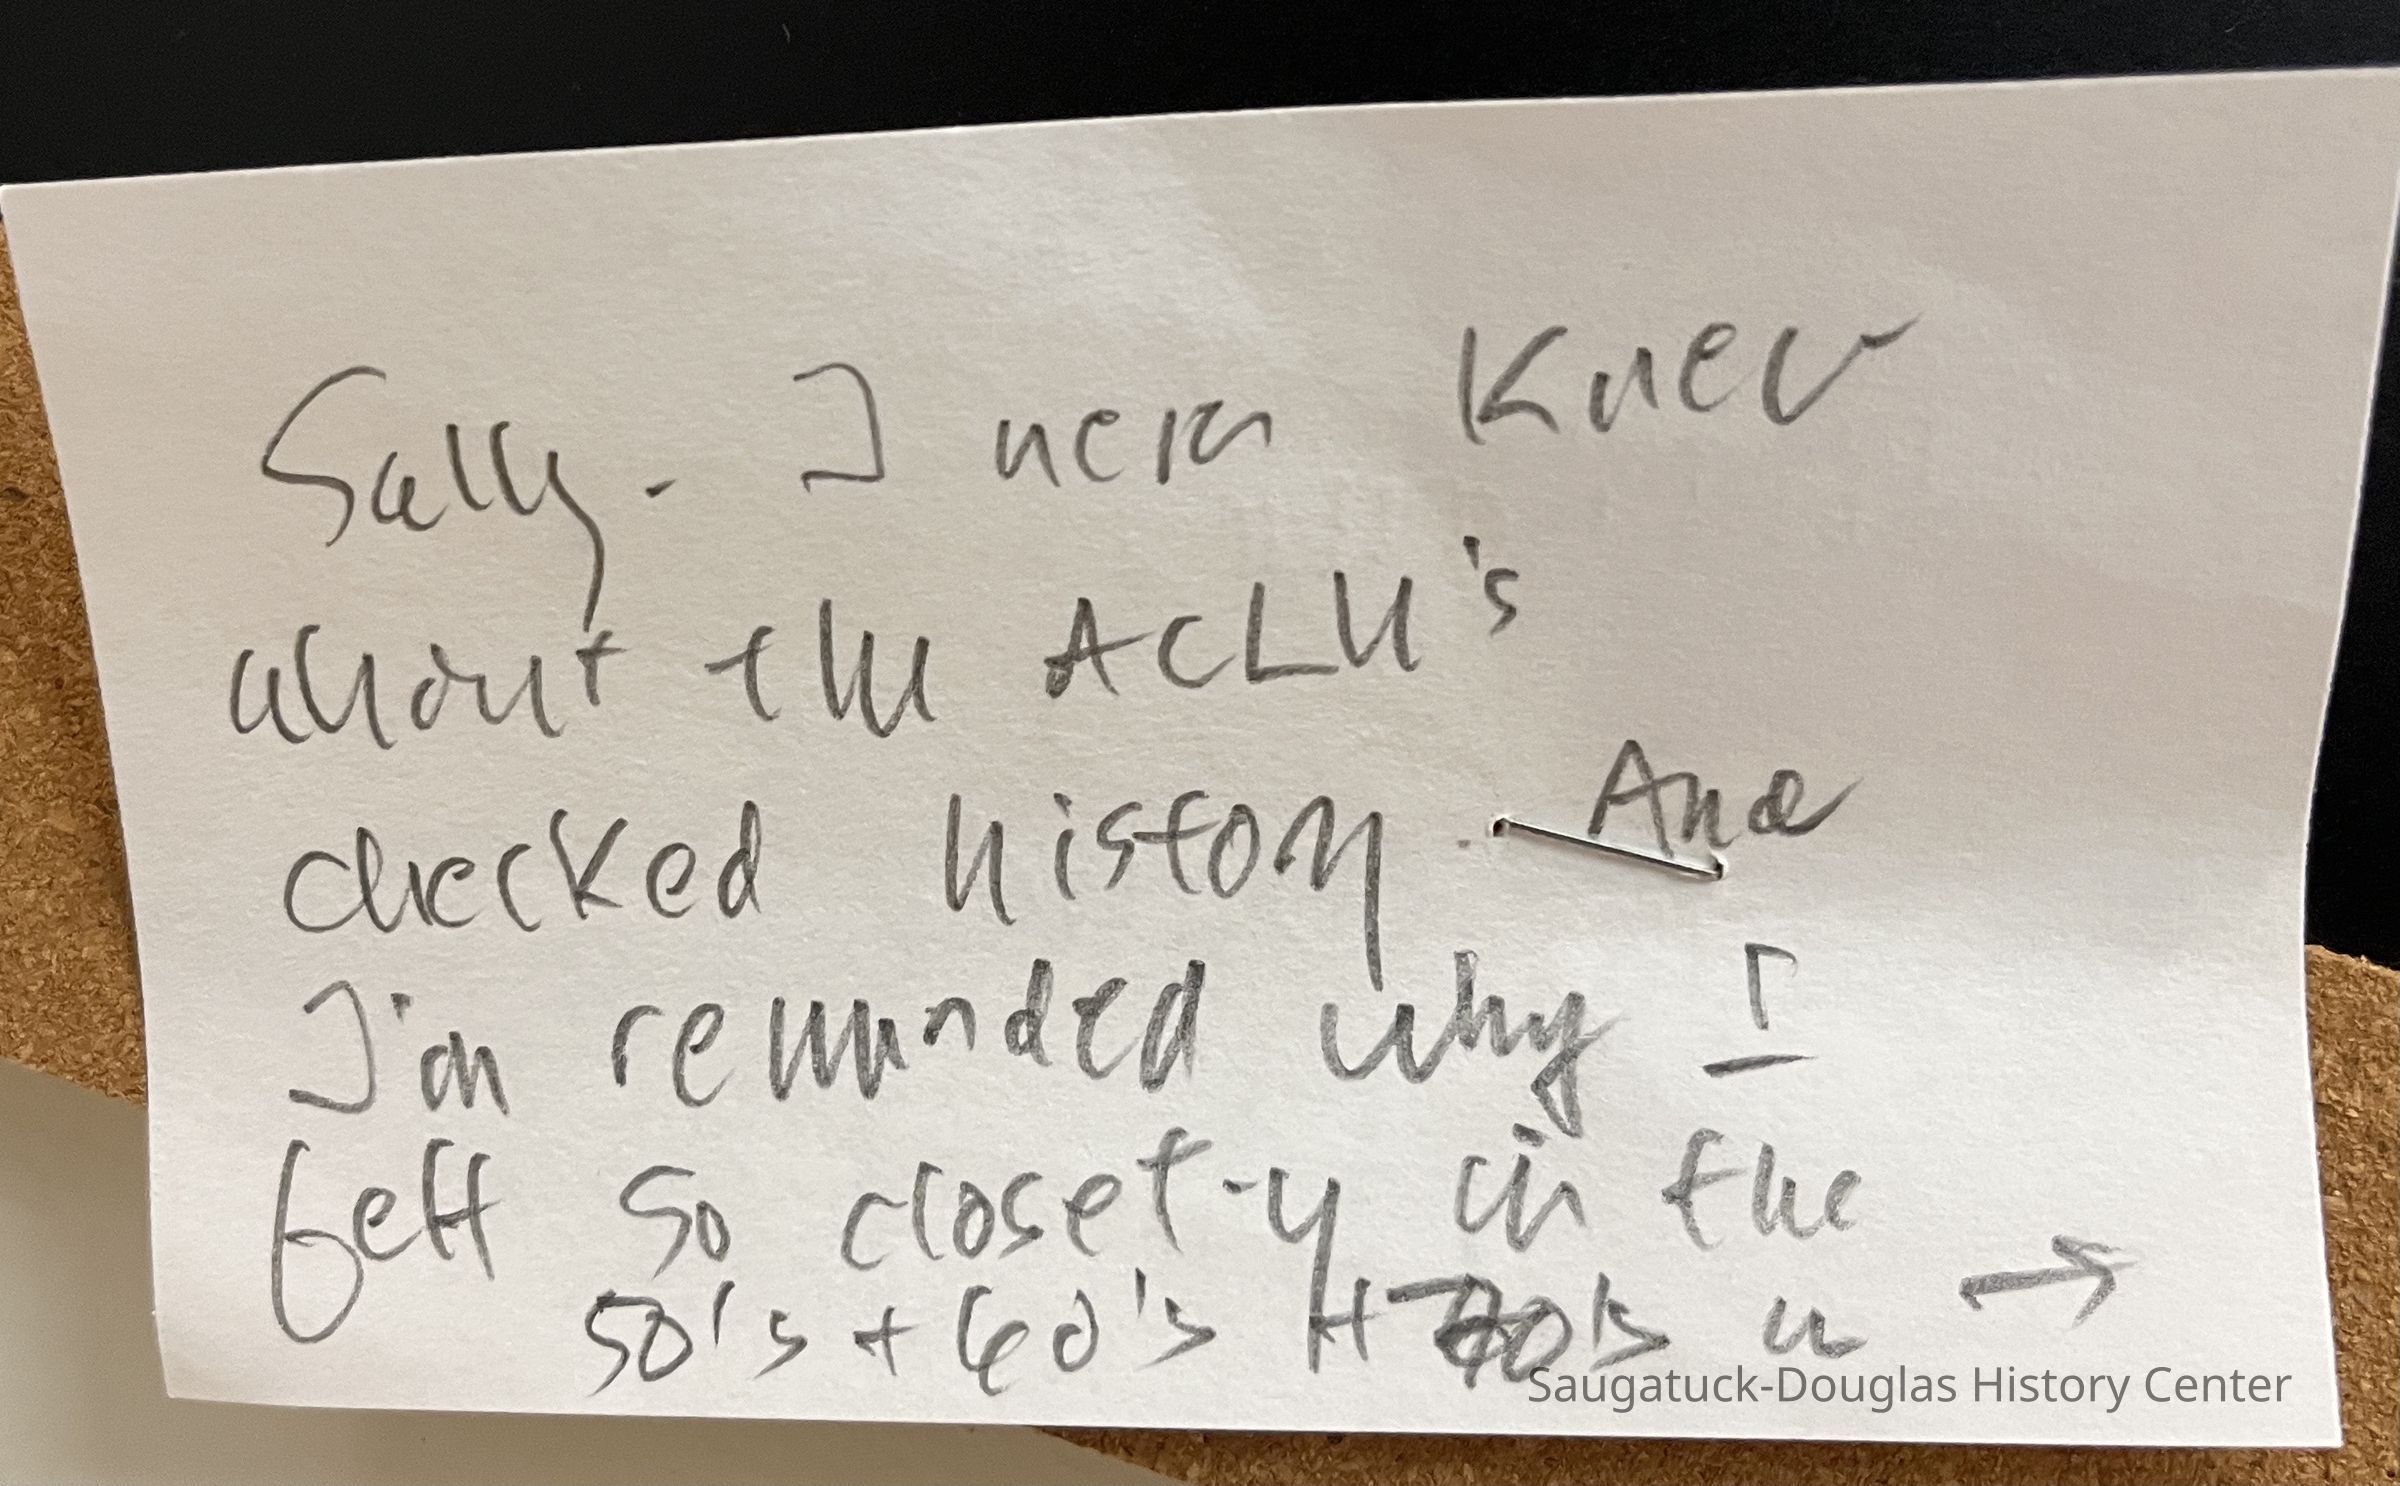 Sally. I never knew
about the ACLU's
checked history. And
I'm reminded why I
felt so closet-y in the
50's + 60's + 70's →
Saugatuck-Douglas History Center